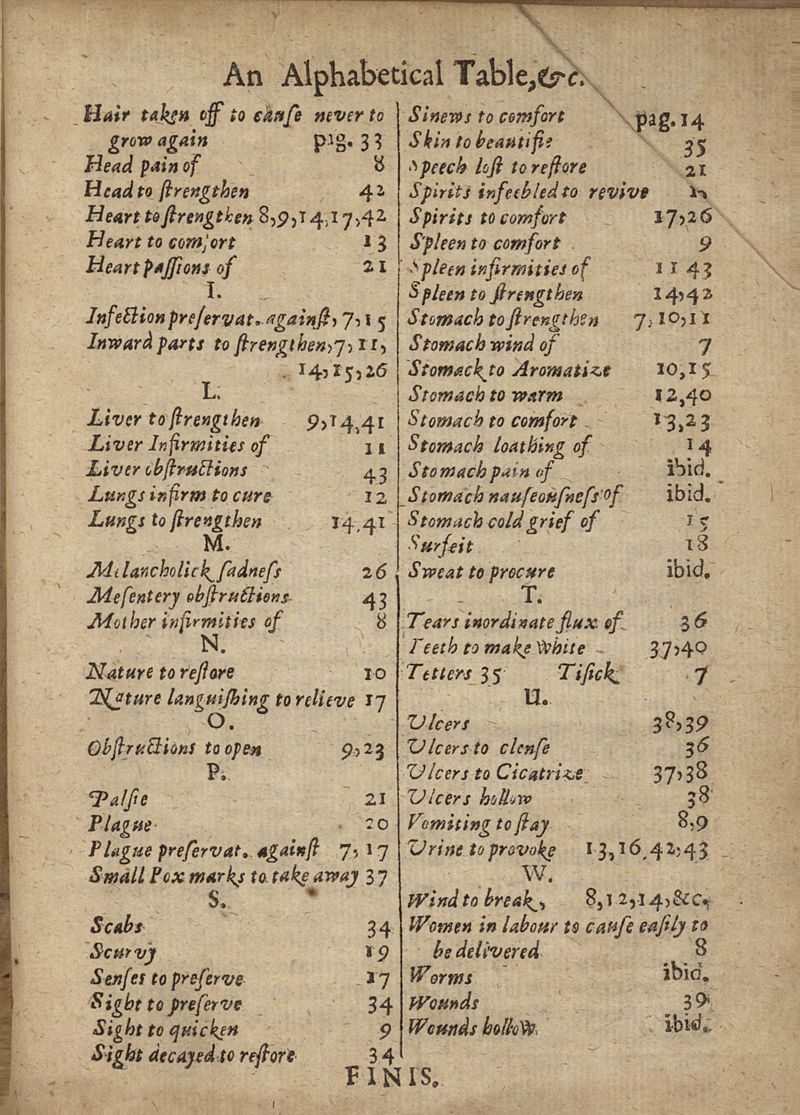 An Alphabetical Table, &c.
Hair taken off to cauſe never to
grow again pag. 33
Head pain of 8
Head to ſtrengthen 42
Heart to ſtrengthen 8,9,14,17,42
Heart to comfort 13
Heart paſſions of 21
I.
Infection preſervat. againſt, 7,15
Inward parts to ſtrengthen, 7,11,
14,15,26
L.
Liver to ſtrengthen 9,14,41
Liver Infirmities of 11
Liver obſtructions 43
Lungs infirm to cure 12
Lungs to ſtrengthen 14,41
M.
Melancholick ſadneſs 26
Meſentery obſtructions 43
Mother infirmities of 8
N.
Nature to reſtore 10
Nature languiſhing to relieve 17
O.
Obſtructions to open 9,23
P.
Palſie 21
Plague 20
Plague preſervat. againſt 7, 17
Small Pox marks to take away 37
S.
Scabs 34
Scurvy 19
Senſes to preſerve 17
Sight to preſerve 34
Sight to quicken 9
Sight decayed to reſtore 34
Sinews to comfort pag. 14
Skin to beautifie 35
Speech loſt to reſtore 21
Spirits infeebled to revive
Spirits to comfort 17,26
Spleen to comfort 9
Spleen infirmities of 11 43
Spleen to ſtrengthen 14,42
Stomach to ſtrengthen 7,10,11
Stomach wind of 7
Stomack to Aromatize 10,15
Stomach to warm 12,40
Stomach to comfort 13,23
Stomach loathing of 14
Stomach pain of ibid.
Stomach nauſeouſneſs of ibid.
Stomach cold grief of 15
Surfeit 18
Sweat to procure ibid.
T.
Tears inordinate flux of 36
Teeth to make white 37,40
Tetters 35 Tiſick 7
U.
Ulcers 38,39
Ulcers to clenſe 36
Ulcers to Cicatrize 37,38
Ulcers hollow 38
Vomiting to ſtay 8,9
Urine to provoke 13,16,42,43
W.
Wind to break, 8,12,14,&c.
Women in labour to cauſe eaſily to
be delivered 8
Worms ibid.
Wounds 39
Wounds hollow ibid.
FINIS.